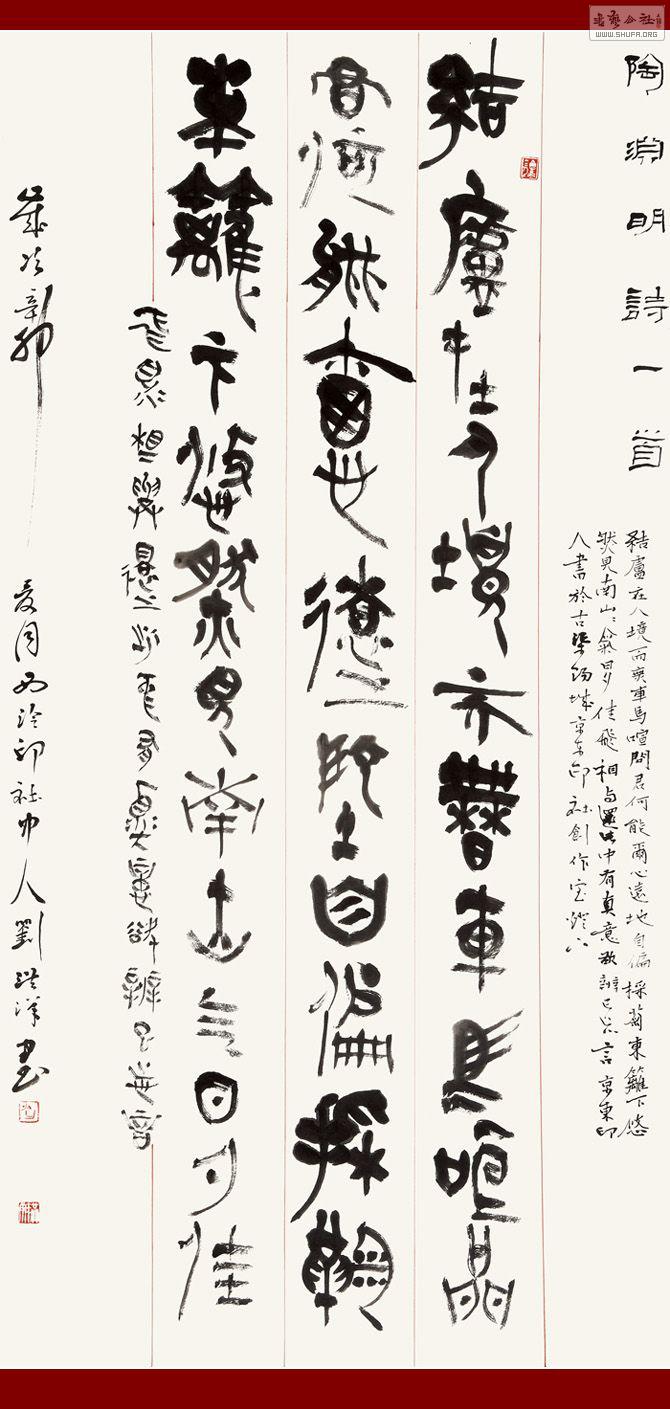 陶淵明詩一首
結廬在人境而無車馬喧問君何能爾心遠地自偏採菊東籬下悠
然見南山〻氣日夕佳飛鳥相與還此中有真意欲辨已忘言京東印
人書於古京东印社創作室燈下
結廬在人境而無車馬喧問
君何能爾心遠地自偏採菊
東籬下悠然見南山氣日夕佳
飛鳥相與還此中有真意欲辨已忘言
歲次辛卯夏月西泠印社中人劉洪洋書
WWW.SHUFA.ORG